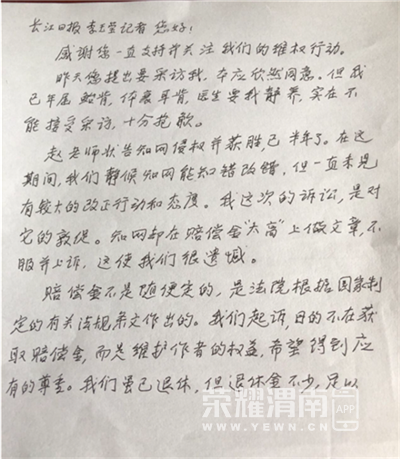 长江日报李玉莹记者 您好!
感谢您一直支持并关注我们的维权行动。
昨天您提出要采访我,本应欣然同意。但我
已年届鲐背,体衰耳背,医生要我静养,实在不
能接受采访,十分抱歉。
赵老师状告知网侵权并获胜已半年了。在这
期间,我们静候知网能知错改错,但一直未见
有较大的改正行动和态度。我这次的诉讼,是对
它的敦促。知网却在赔偿金“太高”上做文章,不
服并上诉,这使我们很遗憾。
赔偿金不是随便定的,是法院根据国家制
定的有关法规条文作出的。我们起诉,目的不在获
取赔偿金,而是维护作者的权益,希望得到应
有的尊重。我们虽已退休,但退休金不少,足以
荣耀渭南 APP
WWW.YEWN.CN